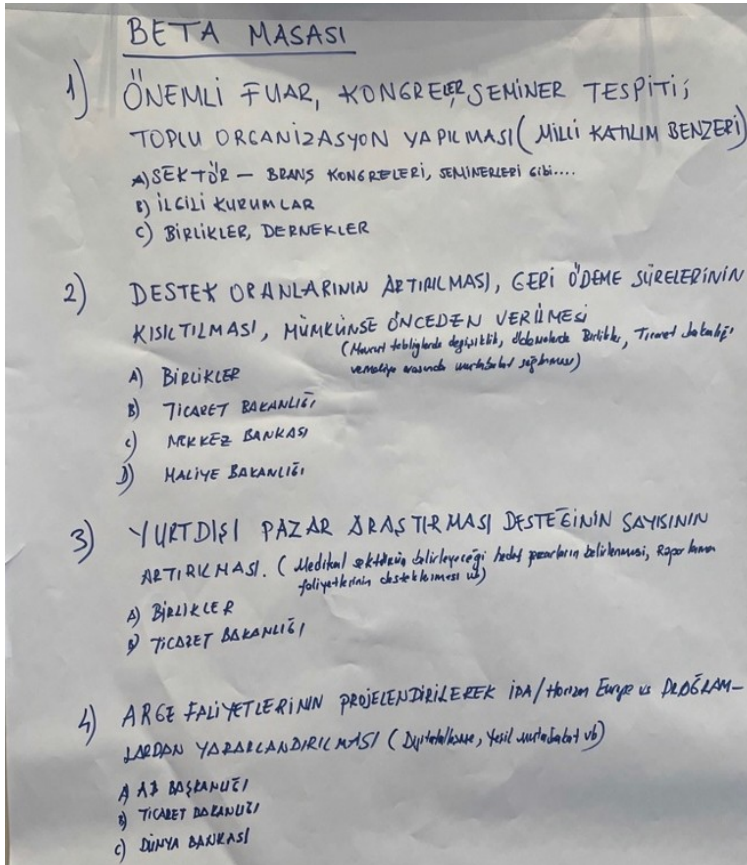 BETA MASASI
1) ÖNEMLİ FUAR, KONGRELER, SEMİNER TESPİTİ;
TOPLU ORGANİZASYON YAPILMASI (MİLLİ KATILIM BENZERİ)
A) SEKTÖR – BRANŞ KONGRELERİ, SEMİNERLERİ GİBİ....
B) İLGİLİ KURUMLAR
C) BİRLİKLER, DERNEKLER
2) DESTEK ORANLARININ ARTIRILMASI, GERİ ÖDEME SÜRELERİNİN
KISILTILMASI, MÜMKÜNSE ÖNCEDEN VERİLMESİ
(Mevcut tebliğlerde değişiklik, Birlikler, Ticaret Bakanlığı
ve maliye arasında sağlanması)
A) BİRLİKLER
B) TİCARET BAKANLIĞI
C) MERKEZ BANKASI
D) MALİYE BAKANLIĞI
3) YURTDIŞI PAZAR ARAŞTIRMASI DESTEĞİNİN SAYISININ
ARTIRILMASI. (Medikal sektörün belirleyeceği hedef pazarların belirlenmesi, Rapor
faliyetlerinin desteklenmesi vb)
A) BİRLİKLER
B) TİCARET BAKANLIĞI
4) ARGE FALİYETLERİNİN PROJELENDİRİLEREK IPA/Horizon Europe vs PROĞRAM-
LARDAN YARARLANDIRILMASI (Dijitalleşme, Yeşil mutabakat vb)
A) AB BAŞKANLIĞI
B) TİCARET BAKANLIĞI
C) DÜNYA BANKASI